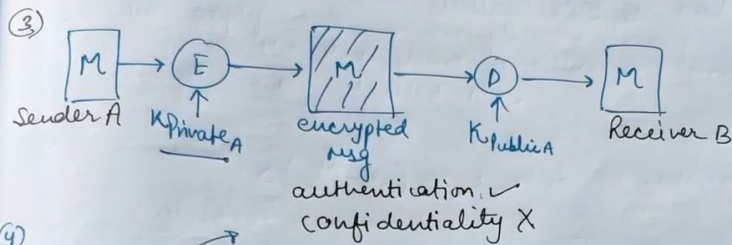 ③
M E M D M
Sender A KPrivateA encrypted Msg KPublicA Receiver B
authentication. ✓
Confidentiality X
④